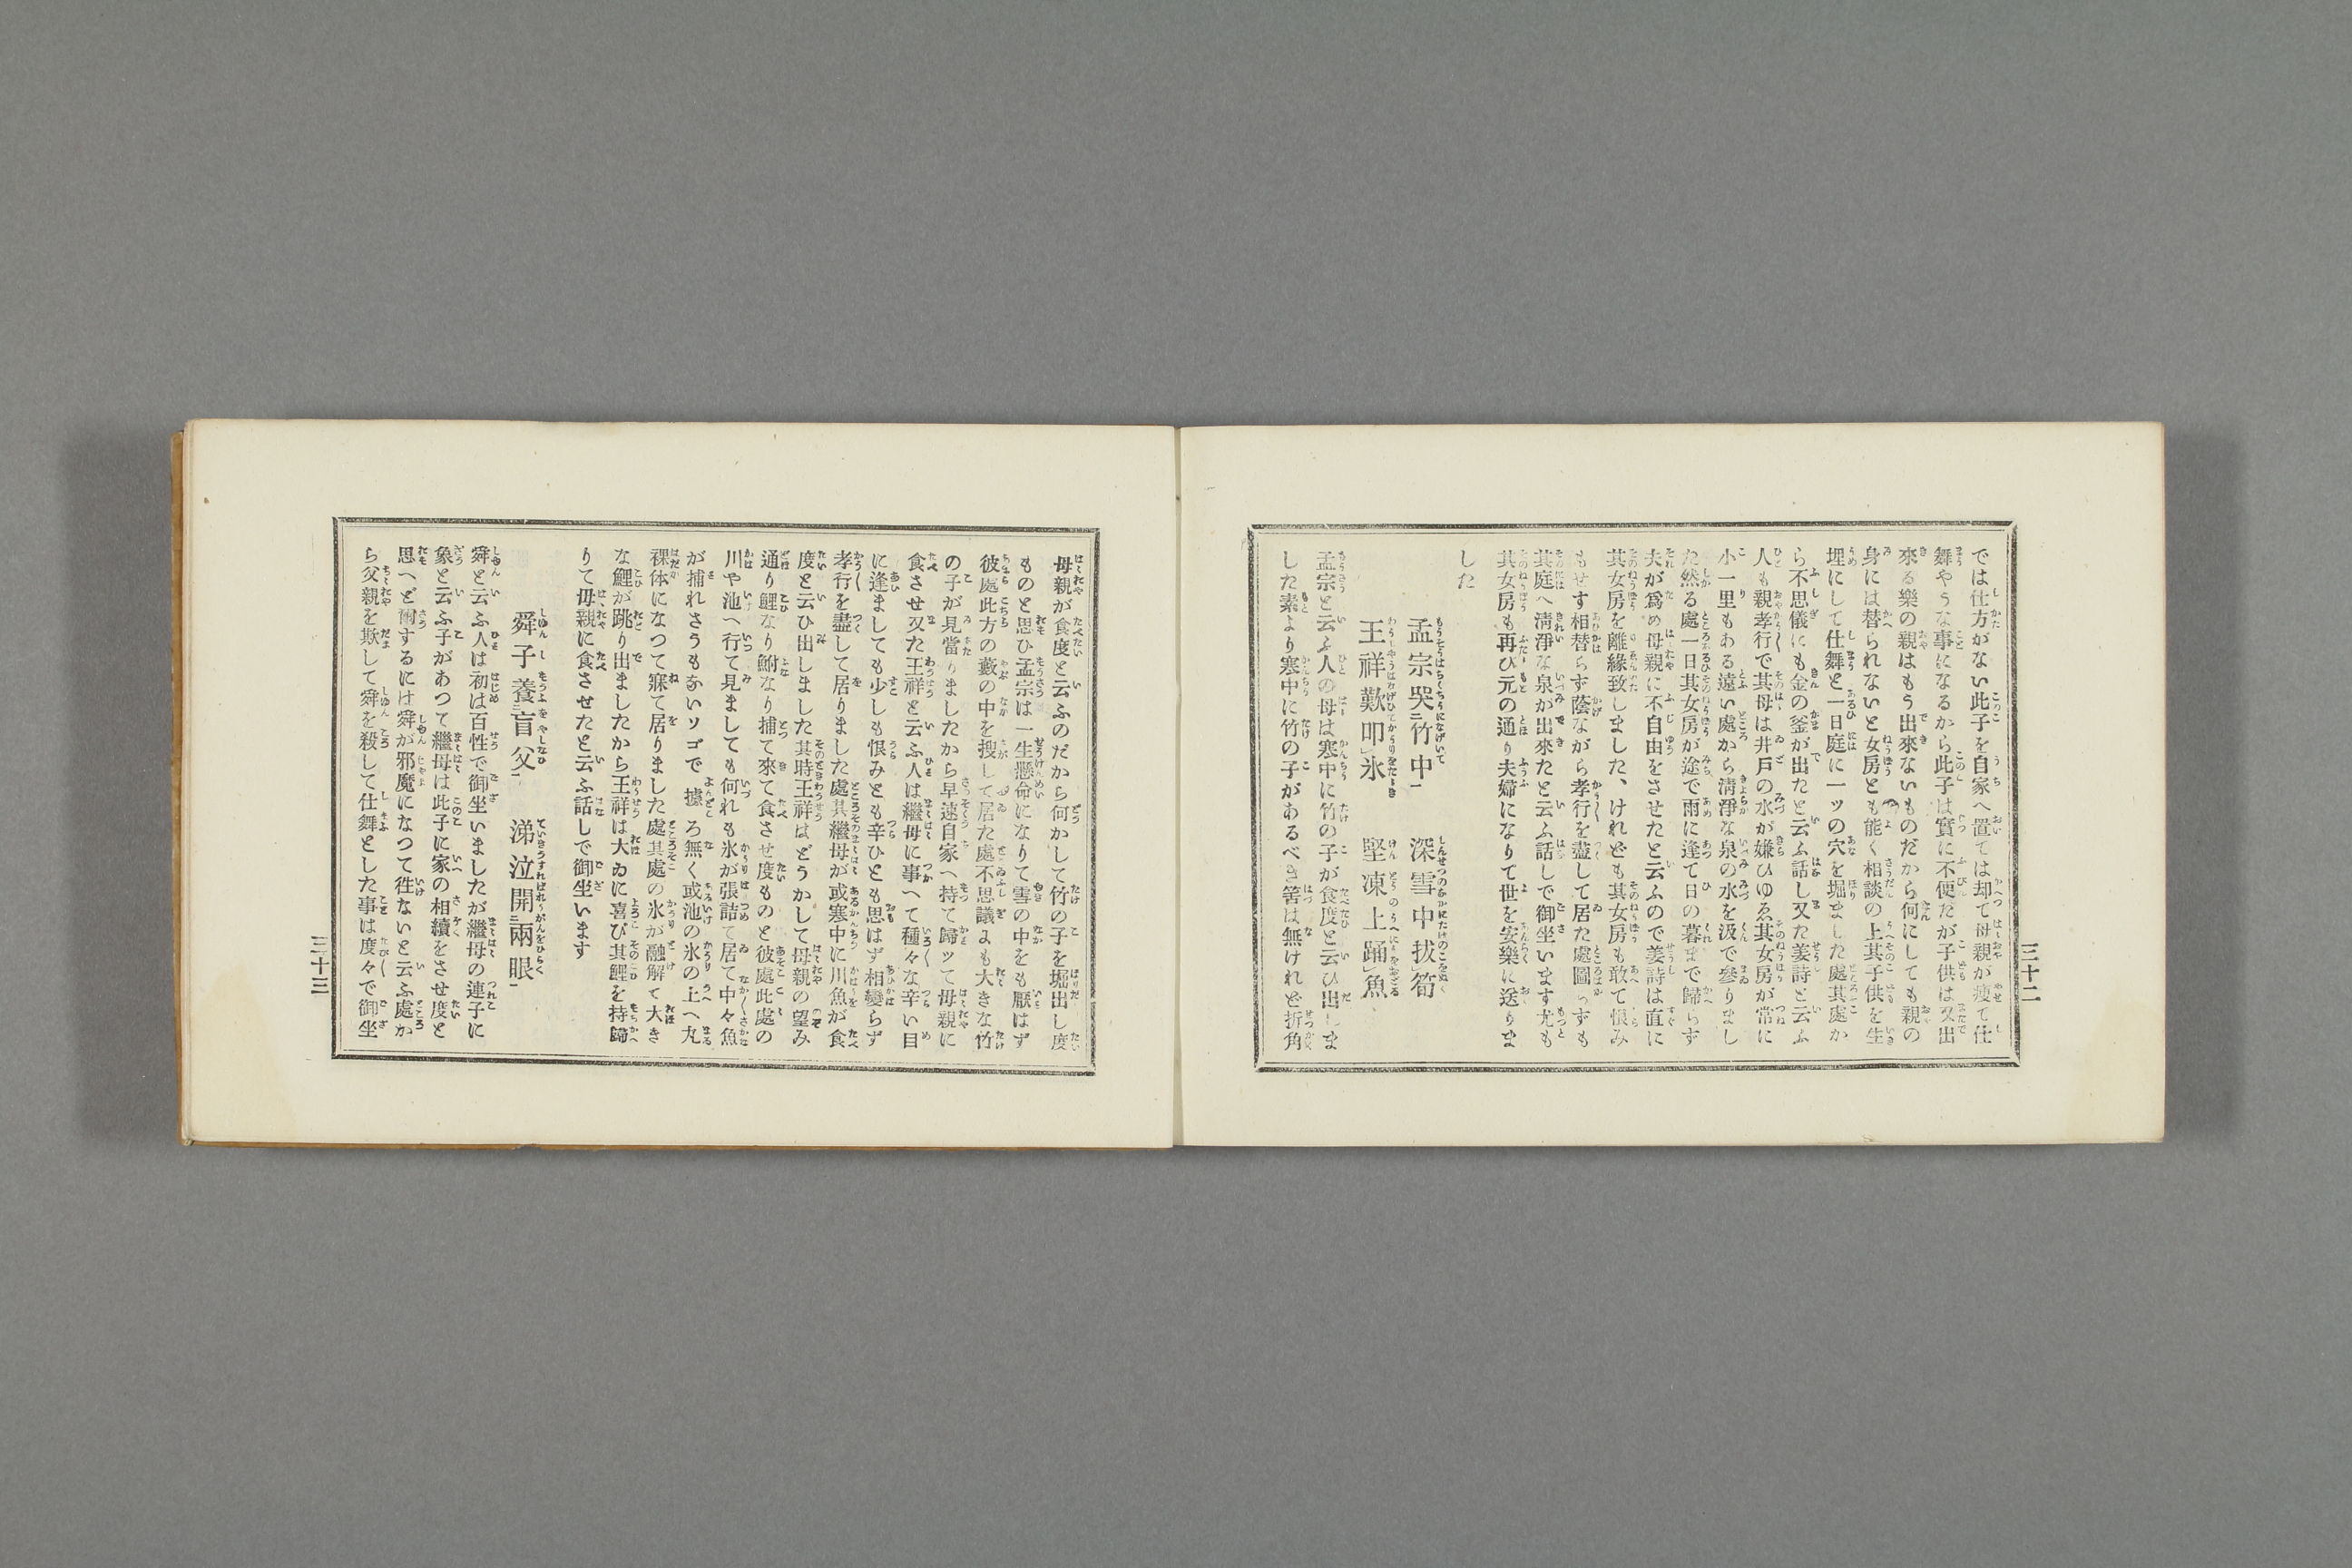 では仕方がない此子を自家へ置ては却て母親が瘦て仕
舞やうな事になるから此子は實に不便だが子供は又出
來る樂の親はもう出來ないものだから何にしても親の
身には替られないと女房とも能く相談の上其子供を生
埋にして仕舞と一日庭に一ッの穴を堀ました處其處か
ら不思儀にも金の釜が出たと云ふ話し又た姜詩と云ふ
人も親孝行で其母は井戸の水が嫌ひゆゑ其女房が常に
小一里もある遠い處から淸淨な泉の水を汲で參りまし
た然る處一日其女房が途で雨に逢て日の暮まで歸らず
夫が爲め母親に不自由をさせたと云ふので姜詩は直に
其女房を離緣致しました、けれども其女房も敢て恨み
もせす相替らず蔭ながら孝行を盡して居た處圖らずも
其庭へ淸淨な泉が出來たと云ふ話しで御坐います尤も
其女房も再び元の通り夫婦になりて世を安樂に送りま
した
孟宗哭二竹中一 深雪中拔レ筍
王祥歎叩レ氷 堅凍上踊レ魚
孟宗と云ふ人の母は寒中に竹の子が食度と云ひ出しま
した素より寒中に竹の子があるべき筈は無けれど折角
三十二
母親が食度と云ふのだから何かして竹の子を堀出し度
ものと思ひ孟宗は一生懸命になりて雪の中をも厭はず
彼處此方の藪の中を搜して居た處不思議にも大きな竹
の子が見當りましたから早速自家へ持て歸ッて母親に
食させ又た王祥と云ふ人は繼母に事へて種々な辛い目
に逢ましても少しも恨みとも辛ひとも思はず相變らず
孝行を盡して居りました處其繼母が或寒中に川魚が食
度と云ひ出しました其時王祥はどうかして母親の望み
通り鯉なり鮒なり捕て來て食させ度ものと彼處此處の
川や池へ行て見ましても何れも氷が張詰て居て中々魚
が捕れさうもないソゴで據ろ無く或池の氷の上へ丸
裸体になつて寐て居りました處其處の氷が融解て大き
な鯉が跳り出ましたから王祥は大ゐに喜び其鯉を持歸
りて母親に食させたと云ふ話しで御坐います
舜子養二盲父一 涕泣開二兩眼一
舜と云ふ人は初は百性で御坐いましたが繼母の連子に
象と云ふ子があつて繼母は此子に家の相續をさせ度と
思へど爾するには舜が邪魔になつて徃ないと云ふ處か
ら父親を欺して舜を殺して仕舞とした事は度々で御坐
三十三